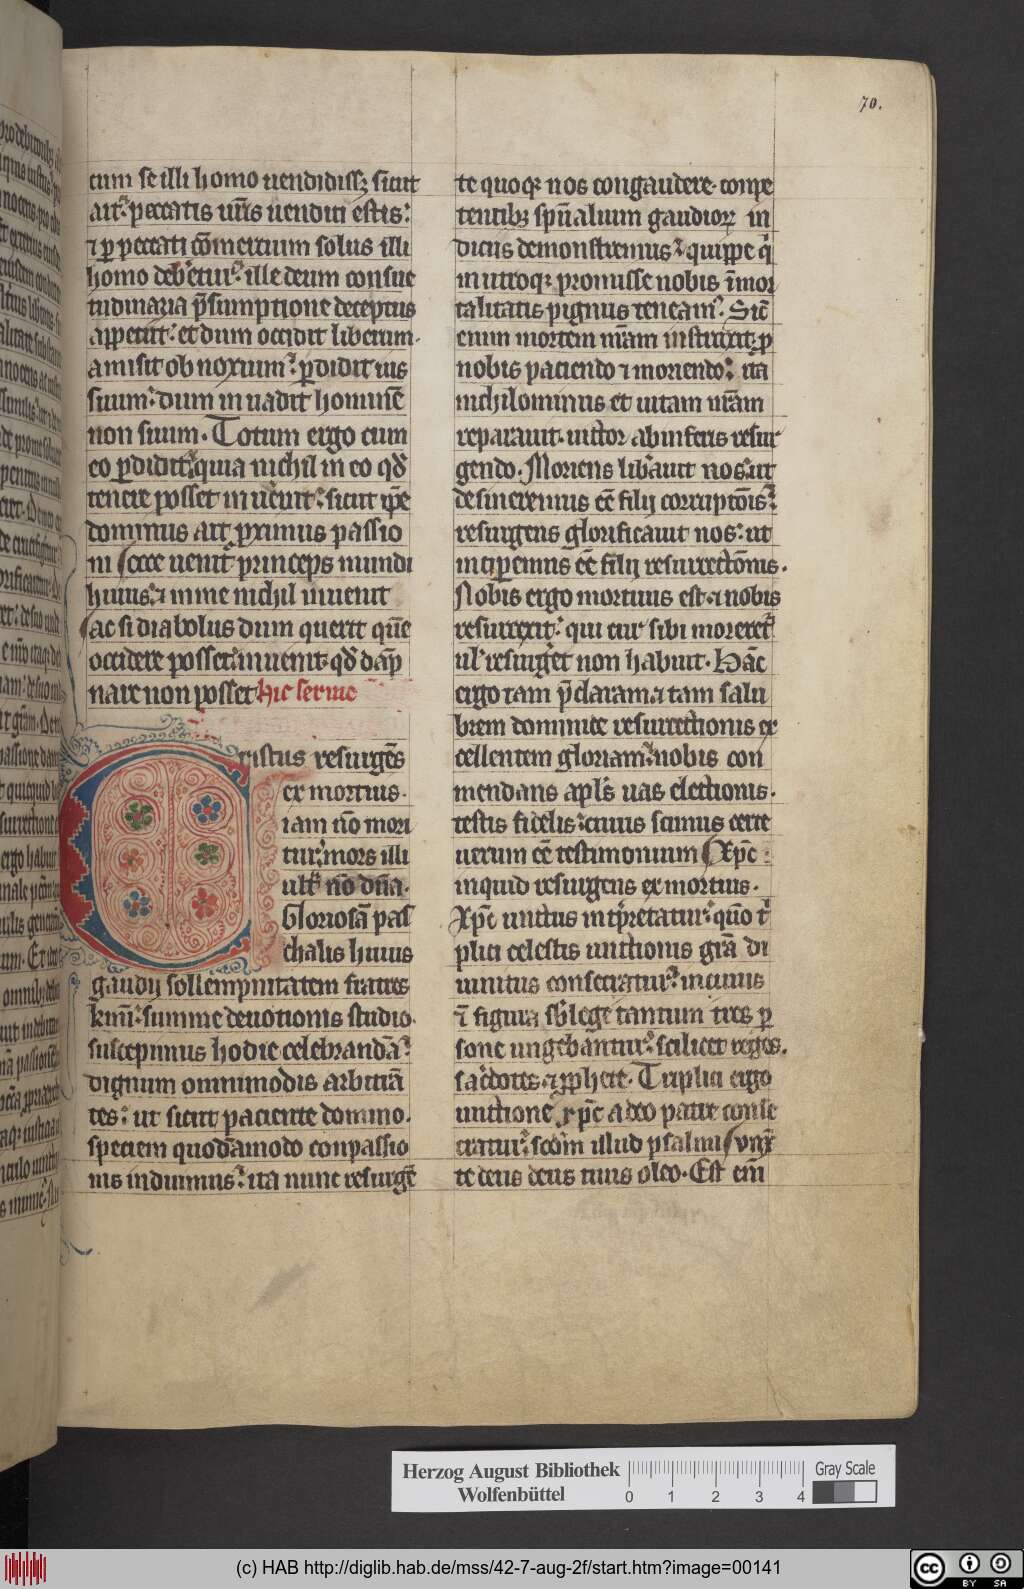 70.
cum se illi homo uendidiss; sicut
ait: peccatis uris uenditi estis:
⁊ p peccati comercium solus illi
homo debetur: ille deum consue
tudinaria psumptione deceptus
appetiit: et dum occidit liberum.
amisit obnoxium: pdidit ius
suum: dum inuadit hominē
non suum. Totum ergo cum
eo pdidit: quia nichil in eo qd
tenere posset inuenit: sicut ipe
dominus ait proximus passio
ni Ecce uenit princeps mundi
huius: ⁊ in me nichil inuenit
Ac si diabolus dum querit que
occidere posset: inuenit qd damp
nare non posset hic sermo
Cristus resurgēs
ex mortuis.
iam nō mori
tur: mors illi
ult nō dna.
Gloriosā pas
chalis huius
gaudij sollempnitatem fratres
kmi: summe deuotionis studio.
suscepimus hodie celebrandā:
dignum omnimodis arbitrā
tes: ut sicut paciente domino.
speciem quodāmodo conpassio
nis induimus: ita nunc resurgē
te quoq; nos congaudere. conpe
tentib; spualium gaudior in
diciis demonstremus: quippe q
in utroq; promisse nobis īmor
talitatis pignus teneam. Sic
enim mortem nram instruxit: p
nobis paciendo ⁊ moriendo: ita
nichilominus et uitam uram
reparauit. uictor ab inferis resur
gendo. Moriens libauit nos: ut
desineremus ee filij corruptois:
resurgens glorificauit nos: ut
inciperemus ee filij resurrectōnis.
Nobis ergo mortuus est. ⁊ nobis
resurrexit: qui cur sibi moreret
ul resurget non habuit. Hāc
ergo tam pclaram ⁊ tam salu
brem dominice resurrectionis ex
cellentem gloriam: nobis con
mendans apls uas electionis.
testis fidelis: cuius scimus certe
uerum ee testimonium Xpc
inquid resurgens ex mortuis.
Xpc unctus intpretatur: quō t
plici celestis unctionis gra di
uinitus consecratur: in cuius
ī figura sb lege tantum tres p
sone ungebantur: scilicet reges.
sacdotes. ⁊ pphete. Triplici ergo
unctione xpc a deo patre conse
cratur: scdm illud psalmi Vnx
te deus deus tuus oleo. Est em
Herzog August Bibliothek
Wolfenbüttel
0 1 2 3 4
Gray Scale
(c) HAB http://diglib.hab.de/mss/42-7-aug-2f/start.htm?image=00141
cc BY SA